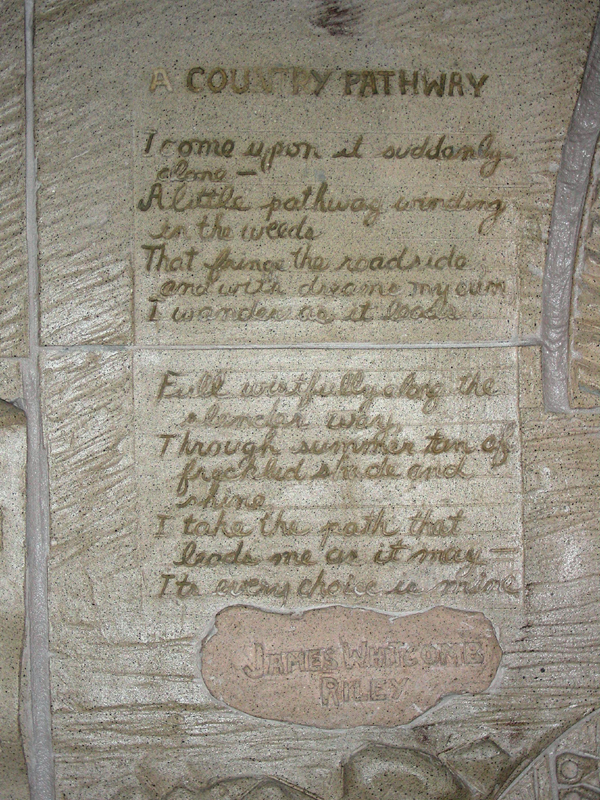 A COUNTRY PATHWAY
I come upon it suddenly
alone —
A little pathway winding
in the weeds
That fringe the roadside
and with dreams my own
I wander as it leads
Full wistfully along the
slender way
Through summer tan of
freckled shade and
shine
I take the path that
leads me as it may —
Its every choice is mine
JAMES WHITCOMB
RILEY